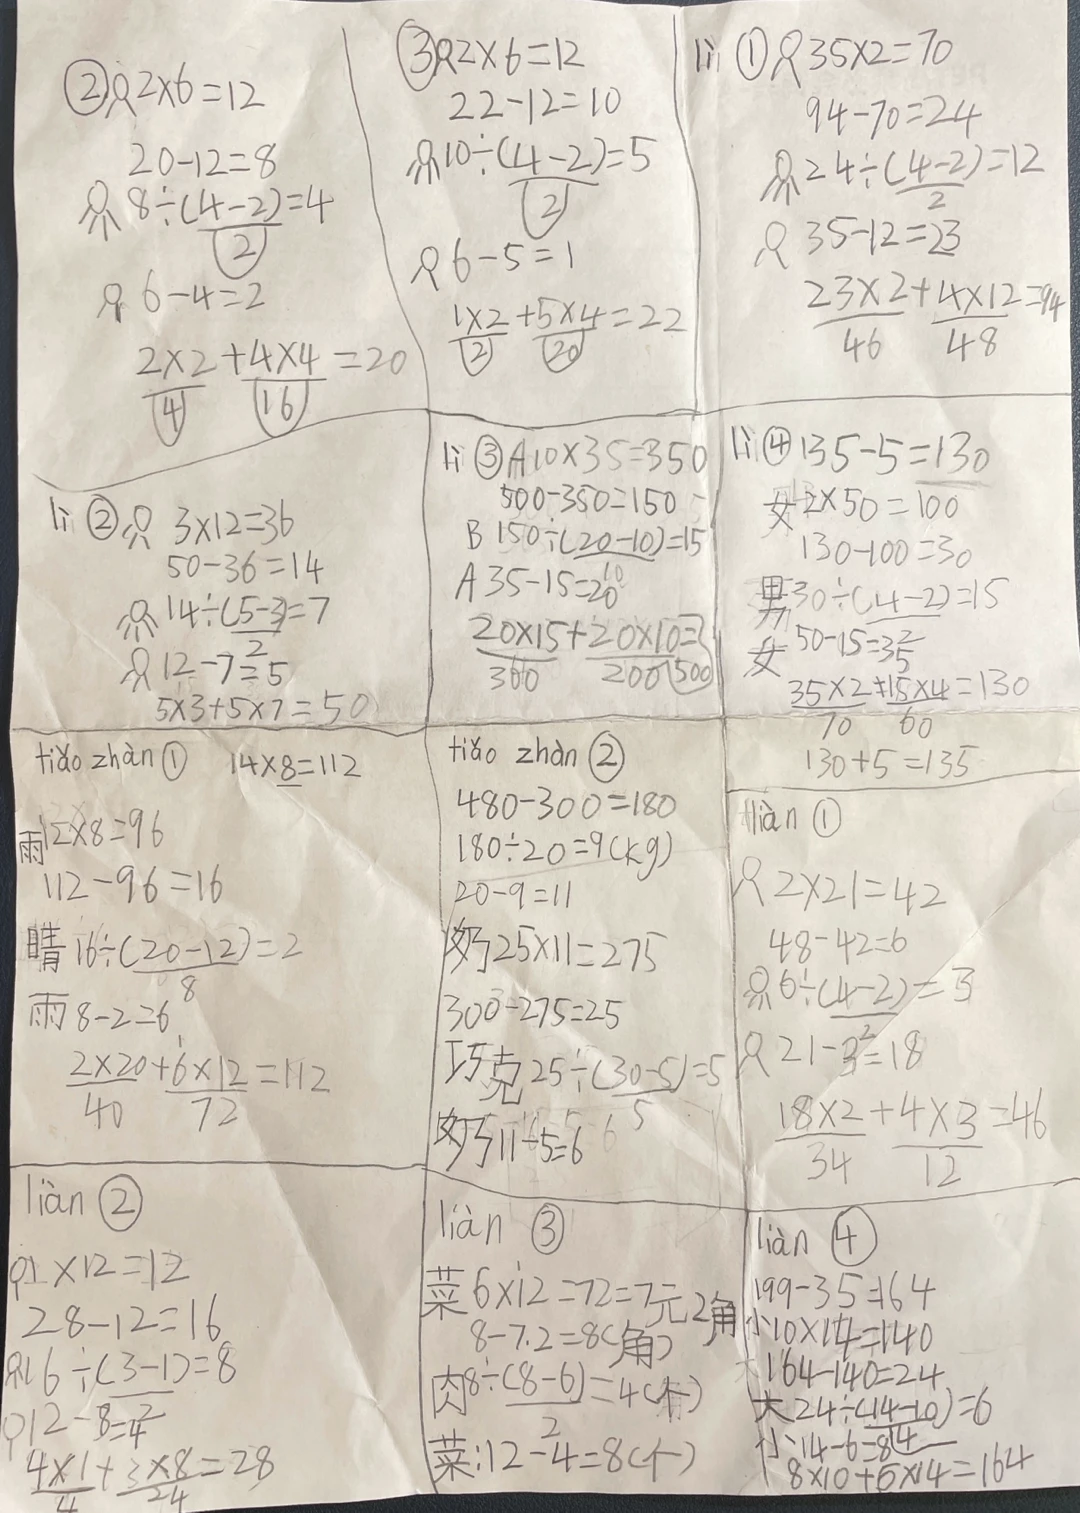 ② 2×6=12
20-12=8
8÷(4-2)=4
2
6-4=2
2×2+4×4=20
4 16
③ 2×6=12
22-12=10
10÷(4-2)=5
2
6-5=1
1×2+5×4=22
2 20
lì ① 35×2=70
94-70=24
24÷(4-2)=12
2
35-12=23
23×2+4×12=94
46 48
lì ② 3×12=36
50-36=14
14÷(5-3)=7
2
12-7=5
5×3+5×7=50
lì ③ A10×35=350
500-350=150
B 150÷(20-10)=15
10
A 35-15=20
20×15+20×10=
300 200 500
lì ④ 135-5=130
女 2×50=100
130-100=30
男 30÷(4-2)=15
2
女 50-15=35
35×2+15×4=130
70 60
130+5=135
tiǎo zhàn ① 14×8=112
雨 12×8=96
112-96=16
晴 16÷(20-12)=2
8
雨 8-2=6
2×20+6×12=112
40 72
tiǎo zhàn ②
480-300=180
180÷20=9(kg)
20-9=11
奶 25×11=275
300-275=25
巧克 25÷(30-5)=5
5
奶 11-5=6
liàn ①
2×21=42
48-42=6
6÷(4-2)=3
2
21-3=18
18×2+4×3=46
34 12
liàn ②
1×12=12
28-12=16
16÷(3-1)=8
2
12-8=4
4×1+3×8=28
4 24
liàn ③
菜 6×12=72=7元2角
8-7.2=8(角)
肉 8÷(8-6)=4(个)
2
菜:12-4=8(个)
liàn ④
199-35=164
小 10×14=140
164-140=24
大 24÷(14-10)=6
4
小 14-6=8
8×10+6×14=164